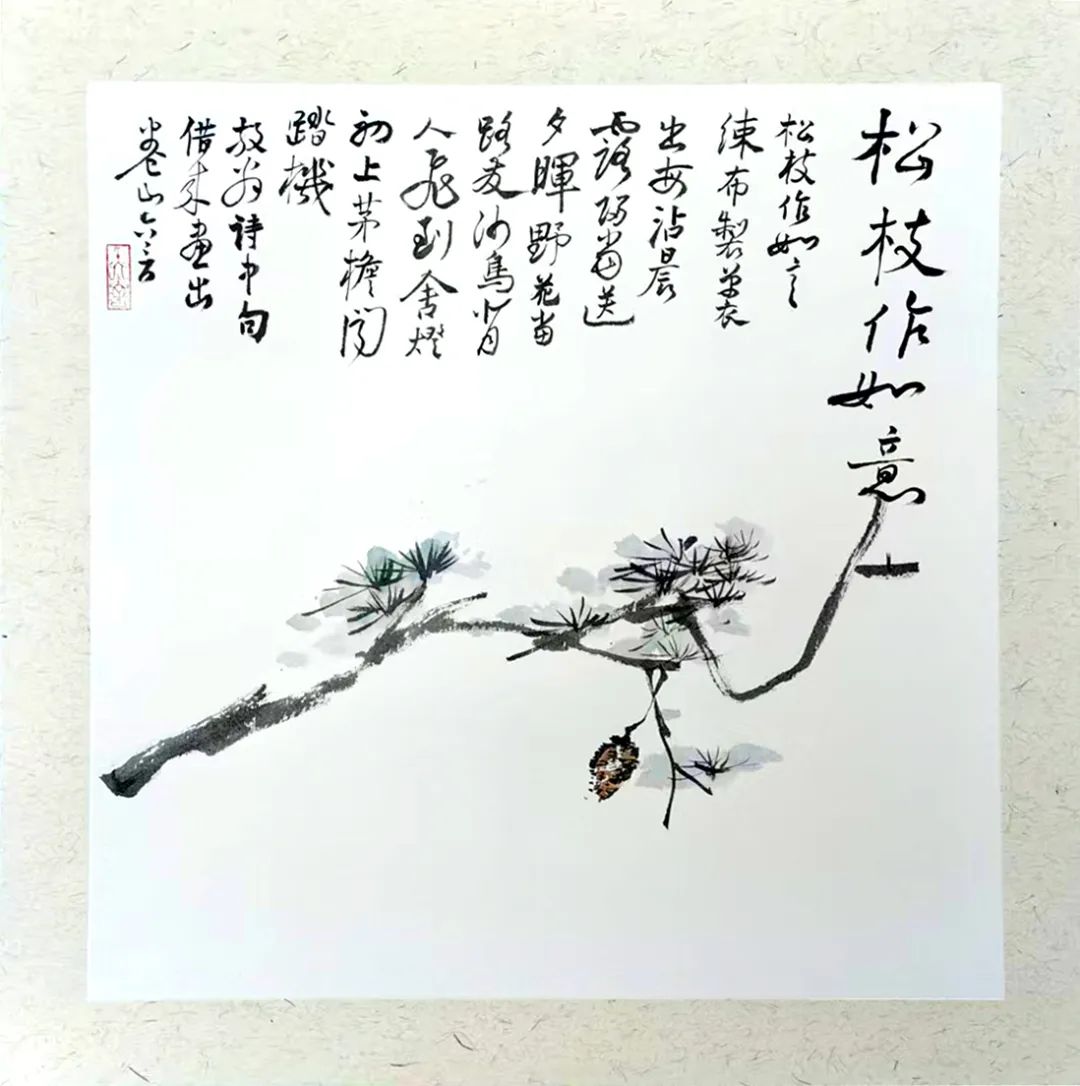 松枝作如意
松枝作如意
練布製單衣
出每沾晨
露歸當送
夕暉野花當
路發沙鳥背
人飛到舍燈
初上茅檐聞
踏機
放翁詩中句
借來畫出
卷山